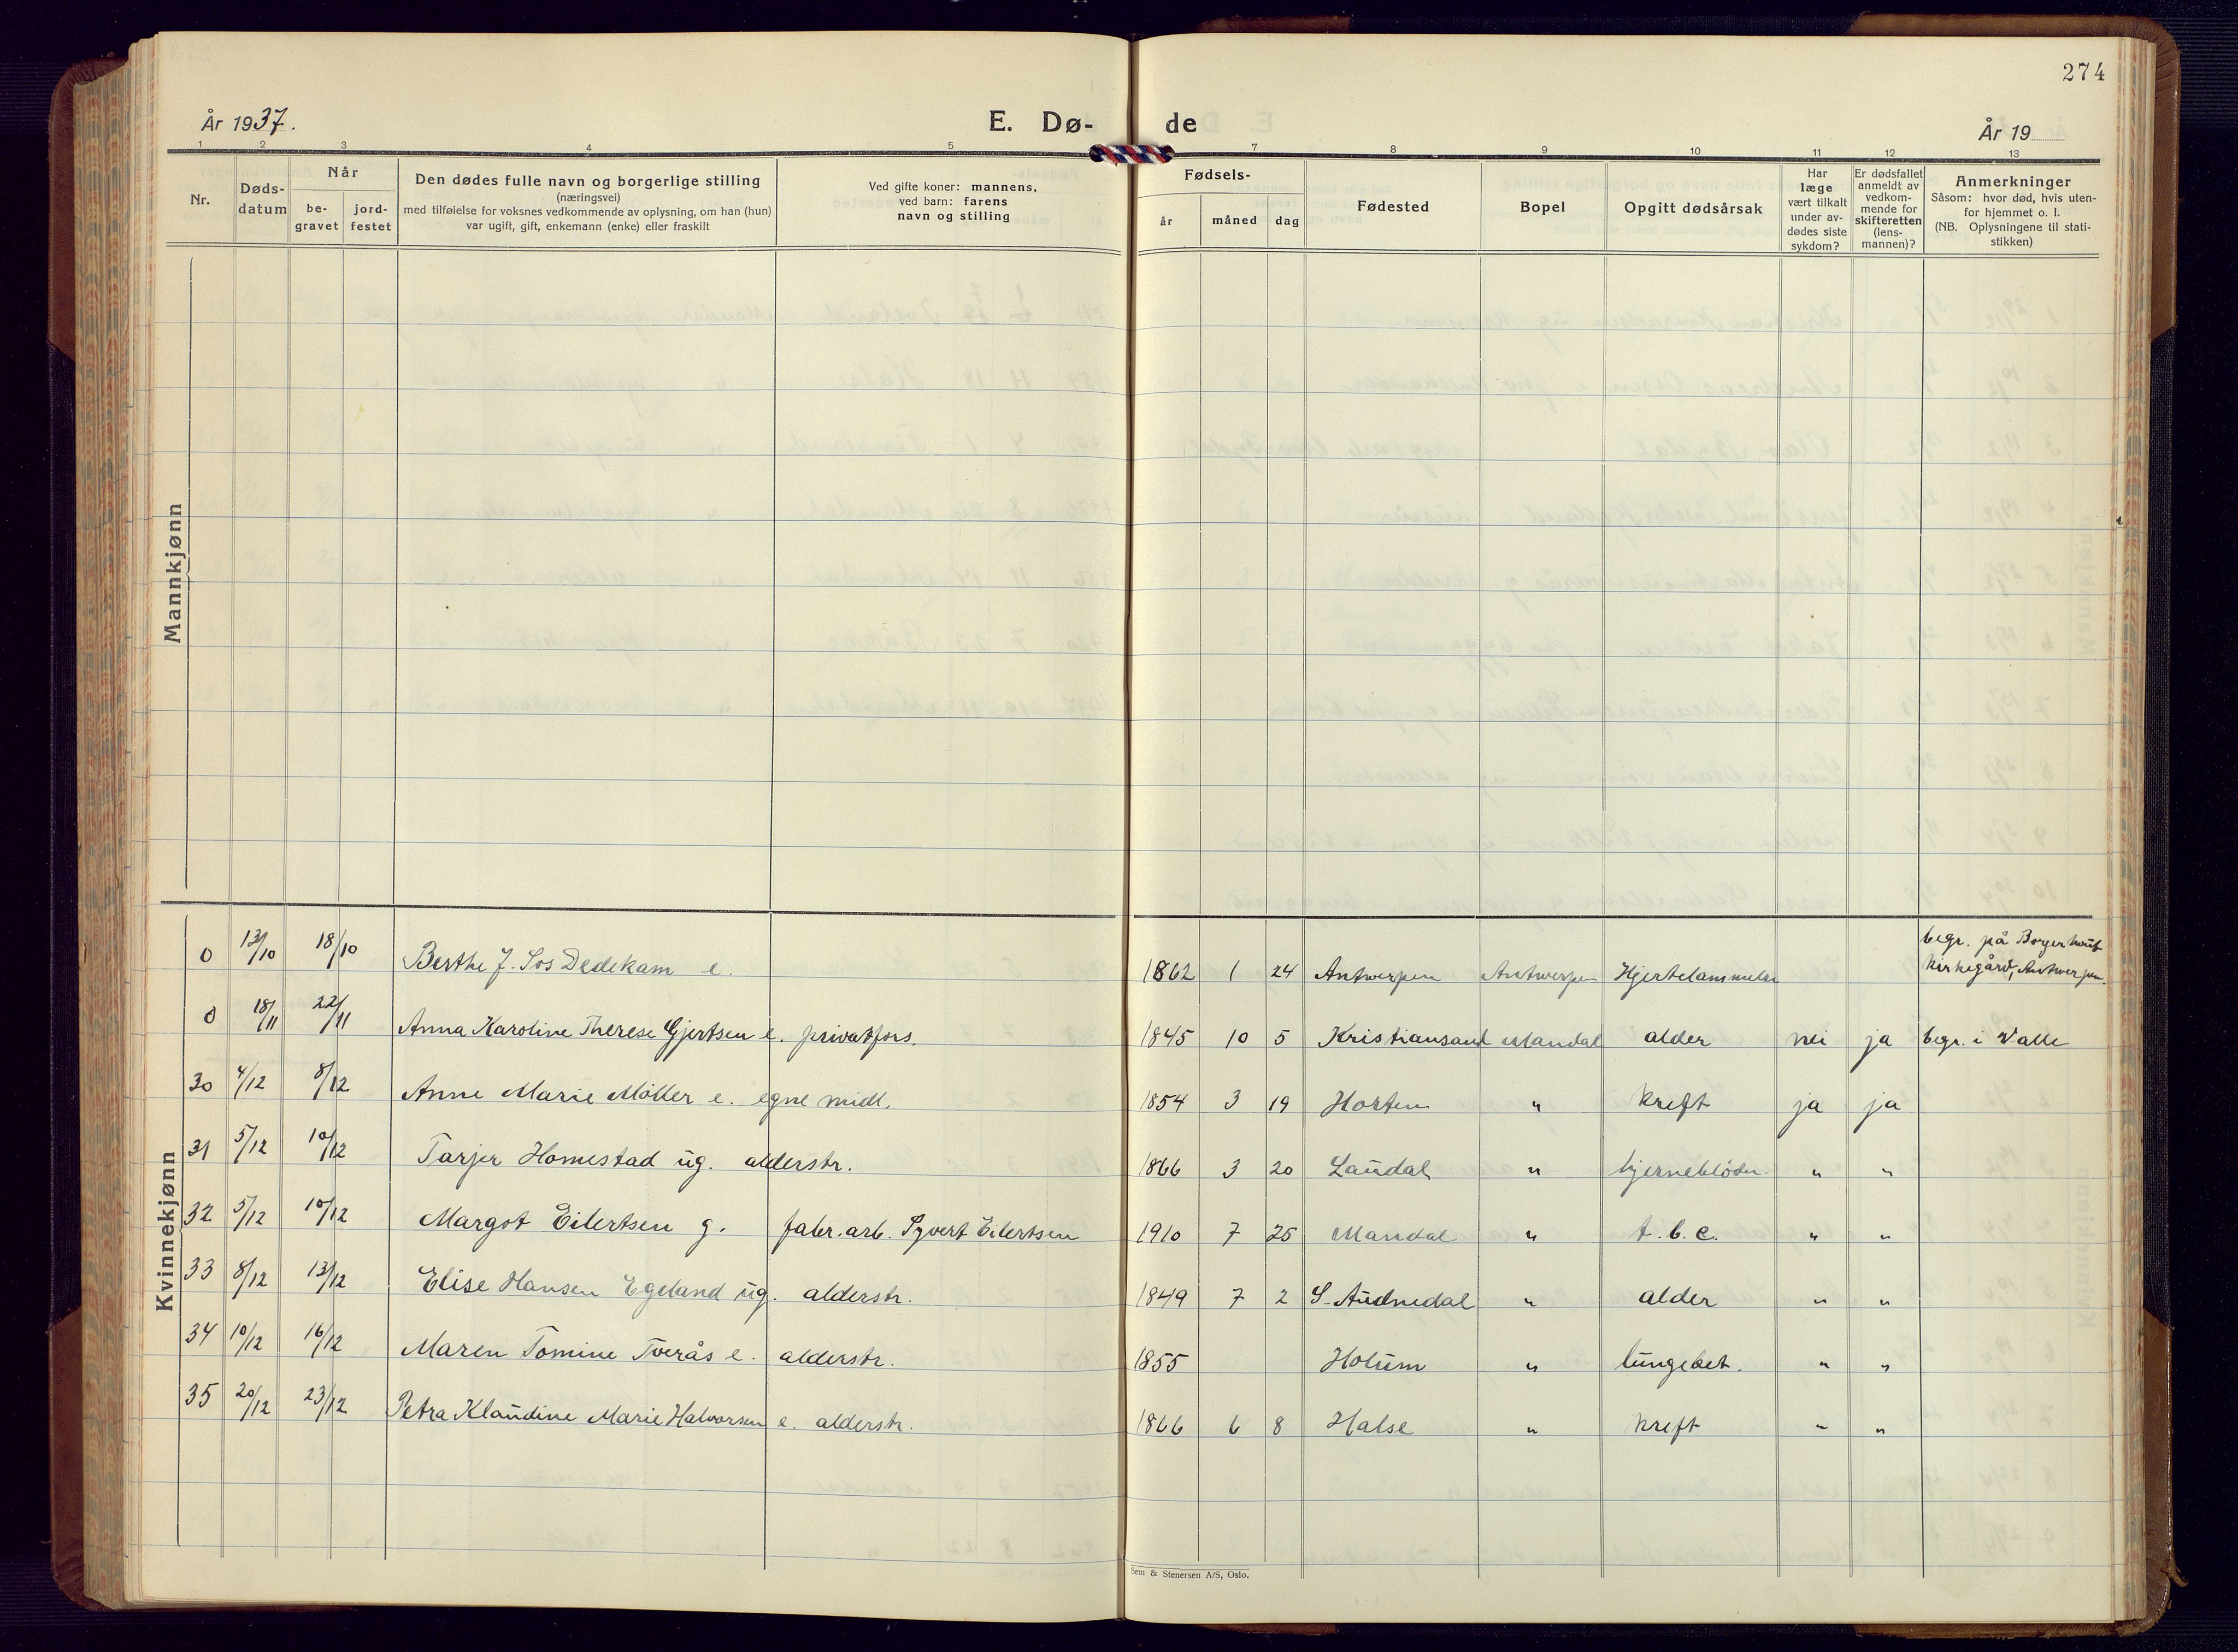 274
År 1937.
E. Dø-de
År 19
1 2 3 4 5 7 8 9 10 11 12 13
Nr.
Døds-
datum
Når
be-
gravet
jord-
festet
Den dødes fulle navn og borgerlige stilling
(næringsvei)
med tilføielse for voksnes vedkommende av oplysning, om han (hun)
var ugift, gift, enkemann (enke) eller fraskilt
Ved gifte koner: mannens,
ved barn: farens
navn og stilling
Fødsels-
år
måned
dag
Fødested
Bopel
Opgitt dødsårsak
Har
læge
vært tilkalt
under av-
dødes siste
sykdom?
Er dødsfallet
anmeldt av
vedkom-
mende for
skifteretten
(lens-
mannen)?
Anmerkninger
Såsom: hvor død, hvis uten-
for hjemmet o. l.
(NB. Oplysningene til stati-
stikken)
Mannkjønn
Kvinnekjønn
0 13/10 18/10 Berthe J. Sos Dedekam e. 1862 1 24 Antwerpen Antwerpen Hjertelammelse begr. på Borgerhout
kirkegård, Antwerpen.
0 18/11 22/11 Anna Karoline Therese Gjertsen e. privatfors. 1845 10 5 Kristiansand Mandal alder nei ja begr. i Valle
30 4/12 8/12 Anne Marie Møller e. egne midl. 1854 3 19 Horten " kreft ja ja
31 5/12 10/12 Tarjer Homestad ug. alderstr. 1866 3 20 Laudal " hjerneblødn. " "
32 5/12 10/12 Margot Eilertsen g. fabr.arb. Syvert Eilertsen 1910 7 25 Mandal " t.b.c. " "
33 8/12 13/12 Elise Hansen Egeland ug. alderstr. 1849 7 2 S-Audnedal " alder " "
34 10/12 16/12 Maren Tomine Tverås e. alderstr. 1855 Holum " lungebet. " "
35 20/12 23/12 Petra Klaudine Marie Halvorsen e. alderstr. 1866 6 8 Halse " kreft " "
Sem & Stenersen A/S, Oslo.